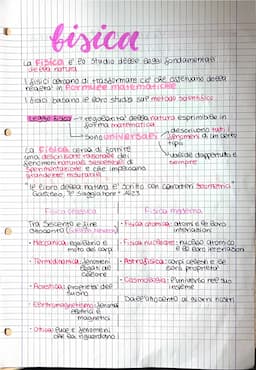 fisica
La FISICA è lo studio delle leggi fondamentali
della natura
I fisici cercano di trasformare ciò che osservano della
realtà in FORMULE MATEMATICHE
I fisici basano il loro studio sul metodo scientifico
Legge fisica → regolarità della natura esprimibile in
forma matematica
→ Sono universali → descrivono tutti i
fenomeni di un certo
tipo
→ Valide dappertutto e
sempre
La FISICA cerca di fornire
una descrizione razionale dei
fenomeni naturali osservabili o
sperimentabili e che implicano
grandezze misurabili
"Il libro della natura è scritto con caratteri
Galileo, Il Saggiatore 1623
Fisica classica
Fisica moderna
Tra Seicento e fine
• Fisica atomica: atomi e le loro
interazioni
• Meccanica: equilibrio e
moto dei corpi
• Fisica nucleare: nucleo atomico
e le loro interazioni
• Termodinamica: fenomeni
legati al
calore
• Astrofisica: corpi celesti e le
loro proprietà
• Acustica: proprietà del
suono
• Cosmologia: l'universo nel suo
insieme
• Elettromagnetismo: fenomeni
elettrici e
magnetici
Dall'Ottocento ai giorni nostri
• Ottica: luce e fenomeni
che la riguardano